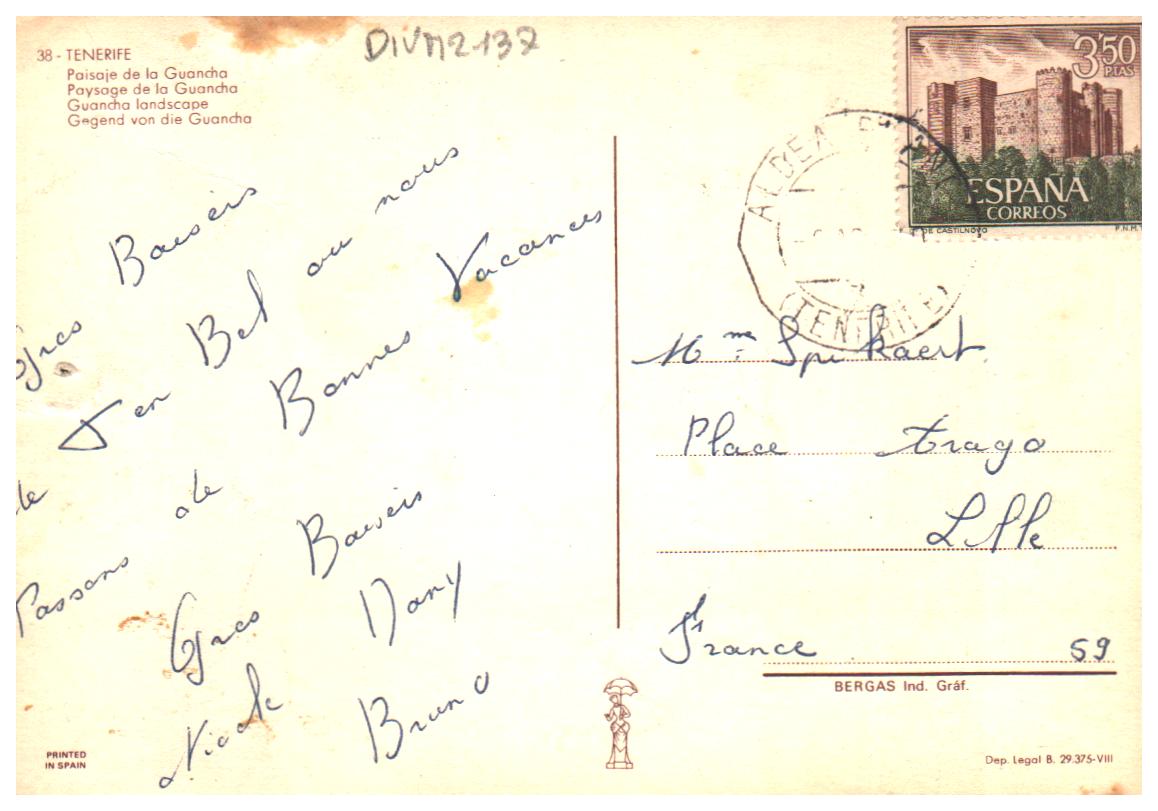 38 - TENERIFE
Paisaje de la Guancha
Paysage de la Guancha
Guancha landscape
Gegend von die Guancha
DIVN2137
3'50
PTAS
ESPAÑA
CORREOS
DE CASTILNOVO
F.N.M.T
ALDEA
(TENERIFE)
Gros Baiseis
de Ten Bel ou nous
Passons de Bonnes Vacances
Gros Baiseis
Nicole Dany
Bruno
Mme Spikaert.
Place Arago
Lille
France 59
BERGAS Ind. Gráf.
PRINTED
IN SPAIN
Dep. Legal B. 29.375-VIII